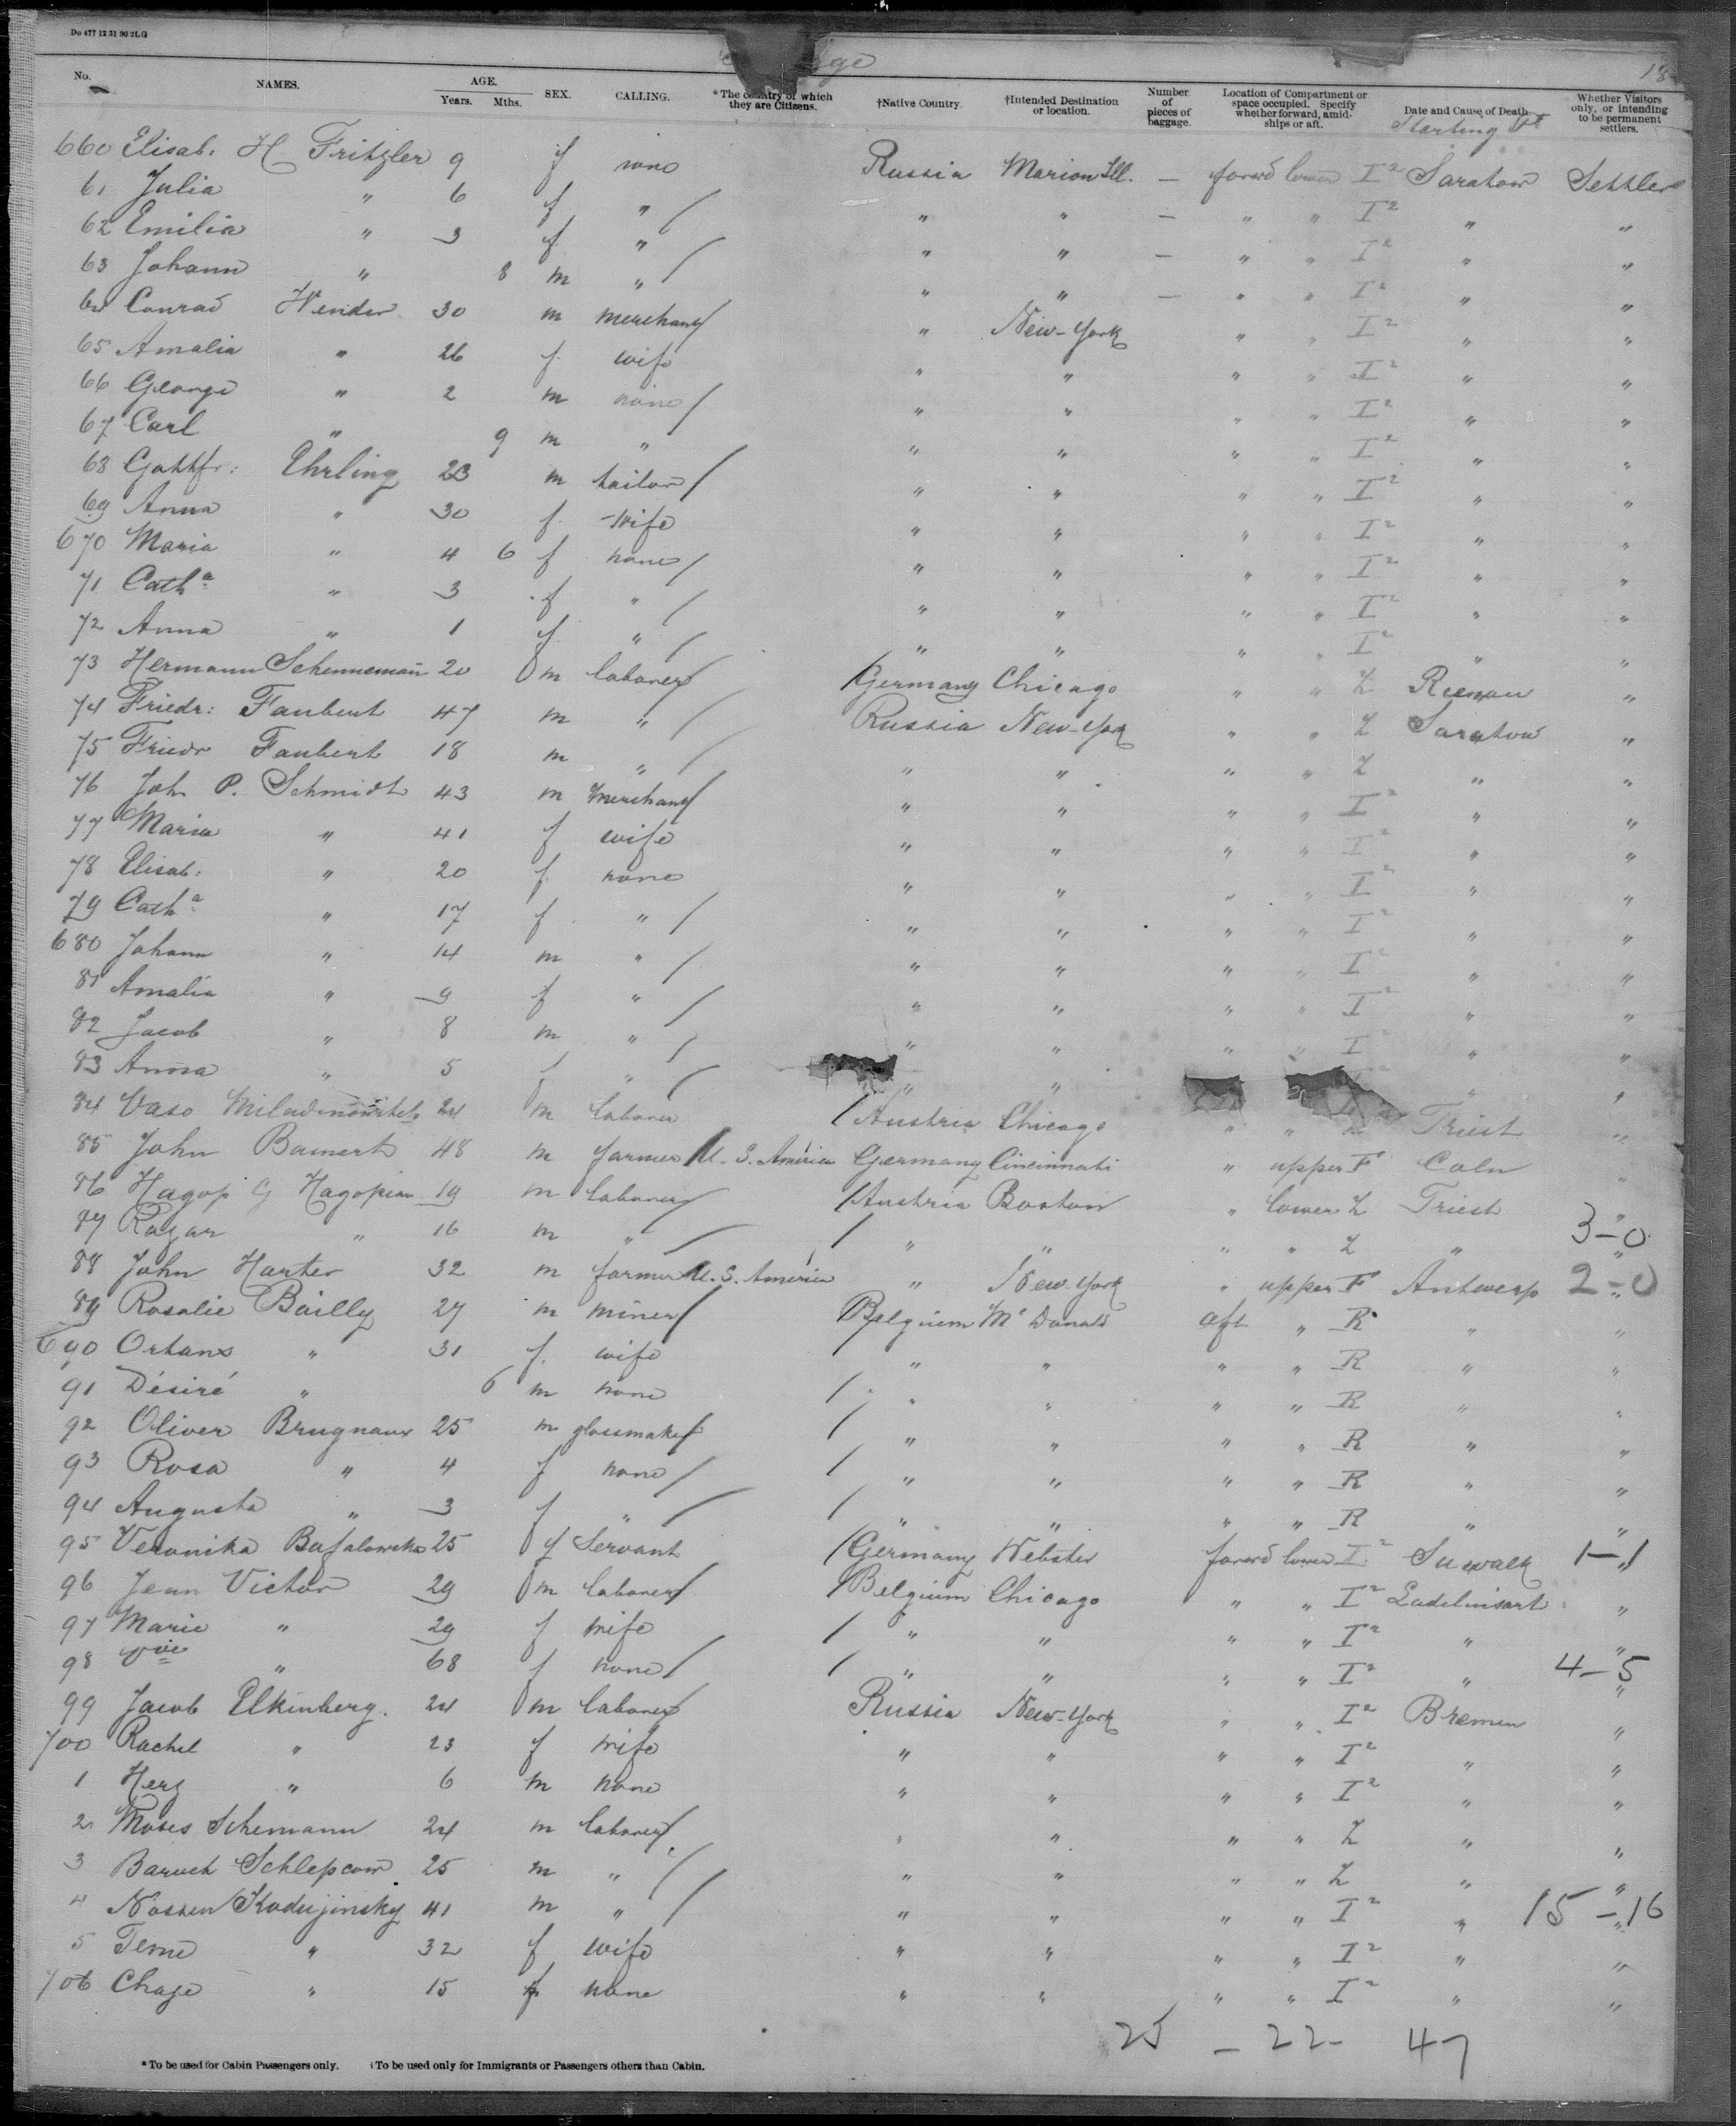 Do 477 12 31 90 2LG
18
No. NAMES. AGE. Years. Mths. SEX. CALLING. *The country of which they are Citizens. †Native Country. †Intended Destination or location. Number of pieces of baggage. Location of Compartment or space occupied. Specify whether forward, amidships or aft. Date and Cause of Death. Whether Visitors only, or intending to be permanent settlers.
Starting Pt
660 Elisab. H Fritzler 9 f none Russia Marion Ill. — forwd lower I2 Saratow Settler
61 Julia " 6 f " " " — " " I2 " "
62 Emilia " 3 f " " " — " " I2 " "
63 Johann " 8 m " " " — " " I2 " "
64 Conrad Wender 30 m merchant " New-York " " I2 " "
65 Amalia " 26 f. wife " " " " I2 " "
66 George " 2 m none " " " " I2 " "
67 Carl " 9 m " " " " " I2 " "
68 Gottfr: Ehrling 23 m tailor " " " " I2 " "
69 Anna " 30 f. wife " " " " I2 " "
670 Maria " 4 6 f none " " " " I2 " "
71 Catha " 3 f " " " " " I2 " "
72 Anna " 1 f " " " " " I2 " "
73 Hermann Schennemann 20 m laborer Germany Chicago " " Z "
74 Friedr: Faubert 47 m " Russia New-York " " Z Saratow "
75 Friedr Faubert 18 m " " " " " Z " "
76 Joh P. Schmidt 43 m merchant " " " " I2 " "
77 Maria " 41 f wife " " " " I2 " "
78 Elisab: " 20 f. none " " " " I2 " "
79 Catha " 17 f " " " " " I2 " "
680 Johann " 14 m " " " " " I2 " "
81 Amalia " 9 f " " " " " I2 " "
82 Jacob " 8 m " " " " " I " "
83 Anna " 5 f " " " " "
84 Vaso 24 m laborer Austria Chicago " " Triest "
85 John Bamert 48 m farmer U. S. America Germany Cincinnati " upper F Coln "
86 Hagop G Hagopian 19 m laborer Austria Boston " lower Z Triest "
87 Ragar " 16 m " " " " " Z " " 3-0
88 John Harter 32 m farmer U. S. America " New-York " upper F Antwerp " 2-0
89 Rosalie Bailly 27 m miner Belgium Mc Donald aft " R " "
690 Ortans " 31 f. wife " " " " R " "
91 Désiré " 6 m none " " " " R " "
92 Oliver Brugnaux 25 m glassmaker " " " " R " "
93 Rosa " 4 f none " " " " R " "
94 Augusta " 3 f " " " " " R " "
95 Veronika 25 f Servant Germany Webster forwd lower I2 Suwalk " 1-1
96 Jean Victor 29 m laborer Belgium Chicago " " I2 Lodelinsart "
97 Marie " 29 f wife " " " " I2 " "
98 Vve " 68 f none " " " " I2 " " 4-5
99 Jacob Elkinberg. 24 m laborer Russia New-York " " I2 Bremen "
700 Rachel " 23 f wife " " " " I2 " "
1 Herz " 6 m none " " " " I2 " "
2 Moses Schemann 24 m laborer " " " " Z " "
3 Baruch Schlepcow 25 m " " " " " Z " "
4 Nossen Kodujinsky 41 m " " " " " I2 " " 15-16
5 Teme " 32 f wife " " " " I2 " "
706 Chaje " 15 f none " " " " I2 " "
25 - 22 - 47
*To be used for Cabin Passengers only. †To be used only for Immigrants or Passengers others than Cabin.